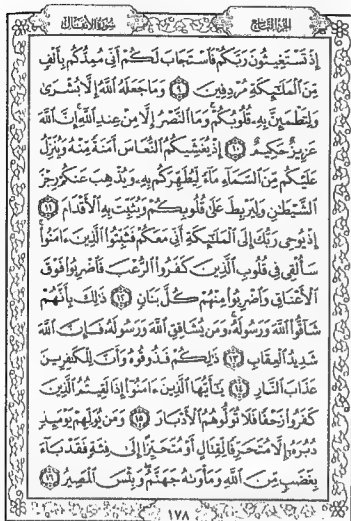 الجزء التاسع سورة الأنفال
إِذْ تَسْتَغِيثُونَ رَبَّكُمْ فَٱسْتَجَابَ لَكُمْ أَنِّي مُمِدُّكُم بِأَلْفٍ
مِّنَ ٱلْمَلَـٰٓئِكَةِ مُرْدِفِينَ ٩ وَمَا جَعَلَهُ ٱللَّهُ إِلَّا بُشْرَىٰ
وَلِتَطْمَئِنَّ بِهِۦ قُلُوبُكُمْ وَمَا ٱلنَّصْرُ إِلَّا مِنْ عِندِ ٱللَّهِ إِنَّ ٱللَّهَ
عَزِيزٌ حَكِيمٌ ١٠ إِذْ يُغَشِّيكُمُ ٱلنُّعَاسَ أَمَنَةً مِّنْهُ وَيُنَزِّلُ
عَلَيْكُم مِّنَ ٱلسَّمَآءِ مَآءً لِّيُطَهِّرَكُم بِهِۦ وَيُذْهِبَ عَنكُمْ رِجْزَ
ٱلشَّيْطَـٰنِ وَلِيَرْبِطَ عَلَىٰ قُلُوبِكُمْ وَيُثَبِّتَ بِهِ ٱلْأَقْدَامَ ١١
إِذْ يُوحِي رَبُّكَ إِلَى ٱلْمَلَـٰٓئِكَةِ أَنِّي مَعَكُمْ فَثَبِّتُوا۟ ٱلَّذِينَ ءَامَنُوا۟
سَأُلْقِي فِي قُلُوبِ ٱلَّذِينَ كَفَرُوا۟ ٱلرُّعْبَ فَٱضْرِبُوا۟ فَوْقَ
ٱلْأَعْنَاقِ وَٱضْرِبُوا۟ مِنْهُمْ كُلَّ بَنَانٍ ١٢ ذَٰلِكَ بِأَنَّهُمْ
شَآقُّوا۟ ٱللَّهَ وَرَسُولَهُۥ وَمَن يُشَاقِقِ ٱللَّهَ وَرَسُولَهُۥ فَإِنَّ ٱللَّهَ
شَدِيدُ ٱلْعِقَابِ ١٣ ذَٰلِكُمْ فَذُوقُوهُ وَأَنَّ لِلْكَـٰفِرِينَ
عَذَابَ ٱلنَّارِ ١٤ يَـٰٓأَيُّهَا ٱلَّذِينَ ءَامَنُوٓا۟ إِذَا لَقِيتُمُ ٱلَّذِينَ
كَفَرُوا۟ زَحْفًا فَلَا تُوَلُّوهُمُ ٱلْأَدْبَارَ ١٥ وَمَن يُوَلِّهِمْ يَوْمَئِذٍ
دُبُرَهُۥٓ إِلَّا مُتَحَرِّفًا لِّقِتَالٍ أَوْ مُتَحَيِّزًا إِلَىٰ فِئَةٍ فَقَدْ بَآءَ
بِغَضَبٍ مِّنَ ٱللَّهِ وَمَأْوَىٰهُ جَهَنَّمُ وَبِئْسَ ٱلْمَصِيرُ ١٦
١٧٨